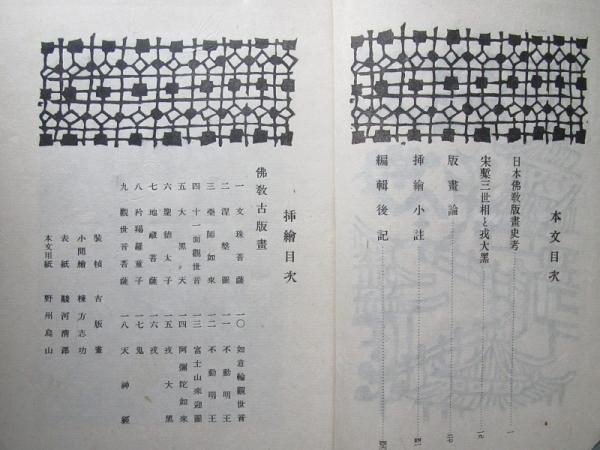 本文目次
日本佛敎版畫史考 一
宋槧三世相と戎大黑 一九
版畫論
揷繪小註
編輯後記
揷繪目次
佛敎古版畫
一 文珠菩薩
二 涅槃圖
三 藥師如來
四 十一面觀世音
五 大黑天
六 聖德太子
七 地藏菩薩
八 矜羯羅童子
九 觀世音菩薩
一〇 如意輪觀世音
一一 不動明王
一二 不動明王
一三 富士山來迎圖
一四 阿彌陀如來
一五 戎大黑
一六 戎
一七 鬼
一八 天神經
裝幀 古版畫
小間繪 棟方志功
表紙 駿河淸郞
本文用紙 野州烏山